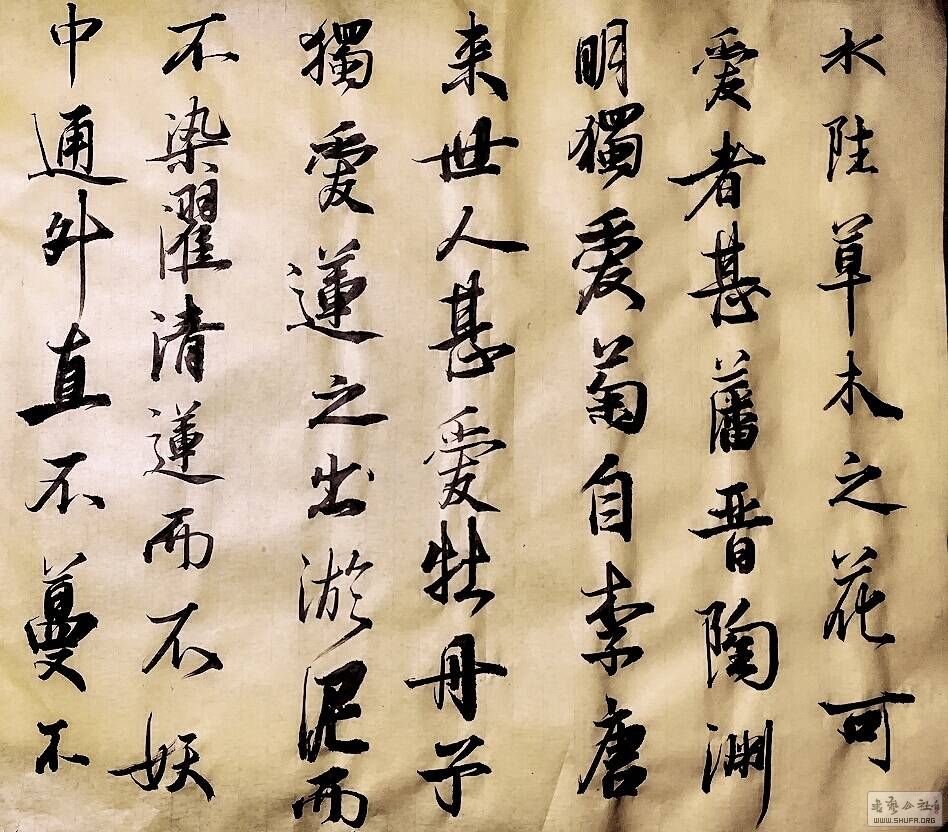 水陸草木之花可
愛者甚藩晋陶淵
明獨愛菊自李唐
来世人甚愛牡丹予
獨愛蓮之出淤泥而
不染濯清蓮而不妖
中通外直不蔓不
WWW.SHUFA.ORG